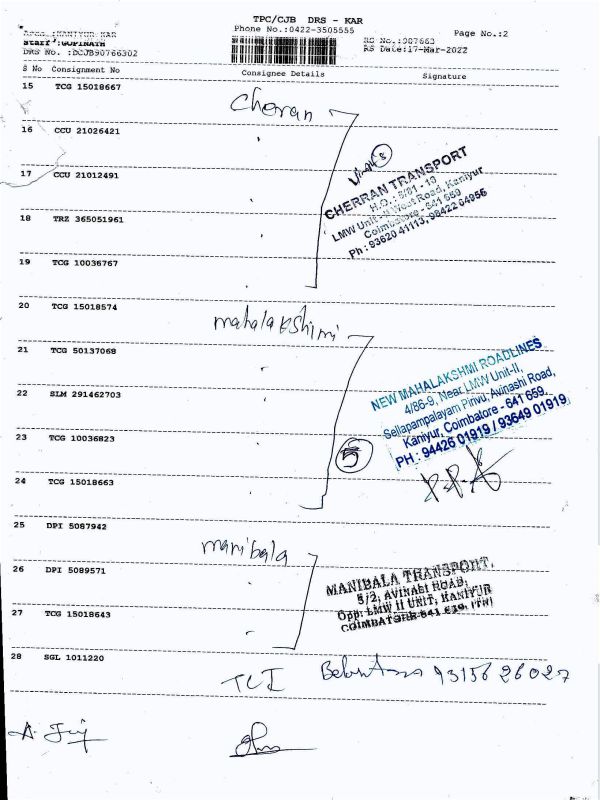 TPC/CJB DRS - KAR
Area :KANIYUR-KAR Phone No.:0422-3505555 Page No.:2
Staff :GOPINATH RS No.:907663
DRS No. :DCJB90766302 RS Date:17-Mar-2022
S No Consignment No Consignee Details Signature
15 TCG 15018667
Cherran
16 CCU 21026421
17 CCU 21012491
5
CHERRAN TRANSPORT
H.O.: 5/81 - 13
LMW Unit-II West Road, Kaniyur
Coimbatore - 641 659
Ph : 93620 41113, 98422 04956
18 TRZ 365051961
19 TCG 10036767
20 TCG 15018574
mahalakshimi
21 TCG 50137068
22 SLM 291462703
NEW MAHALAKSHMI ROADLINES
4/86-9, Near LMW Unit-II,
Sellapampalayam Pirivu, Avinashi Road,
Kaniyur, Coimbatore - 641 659.
PH : 94426 01919 / 93649 01919
23 TCG 10036823
5
24 TCG 15018663
25 DPI 5087942
manibala
26 DPI 5089571
MANIBALA TRANSPORT,
5/2, AVINASI ROAD,
Opp: LMW II UNIT, KANIYUR
COIMBATORE-641 659. (TN)
27 TCG 15018643
28 SGL 1011220
TCI 9315626027